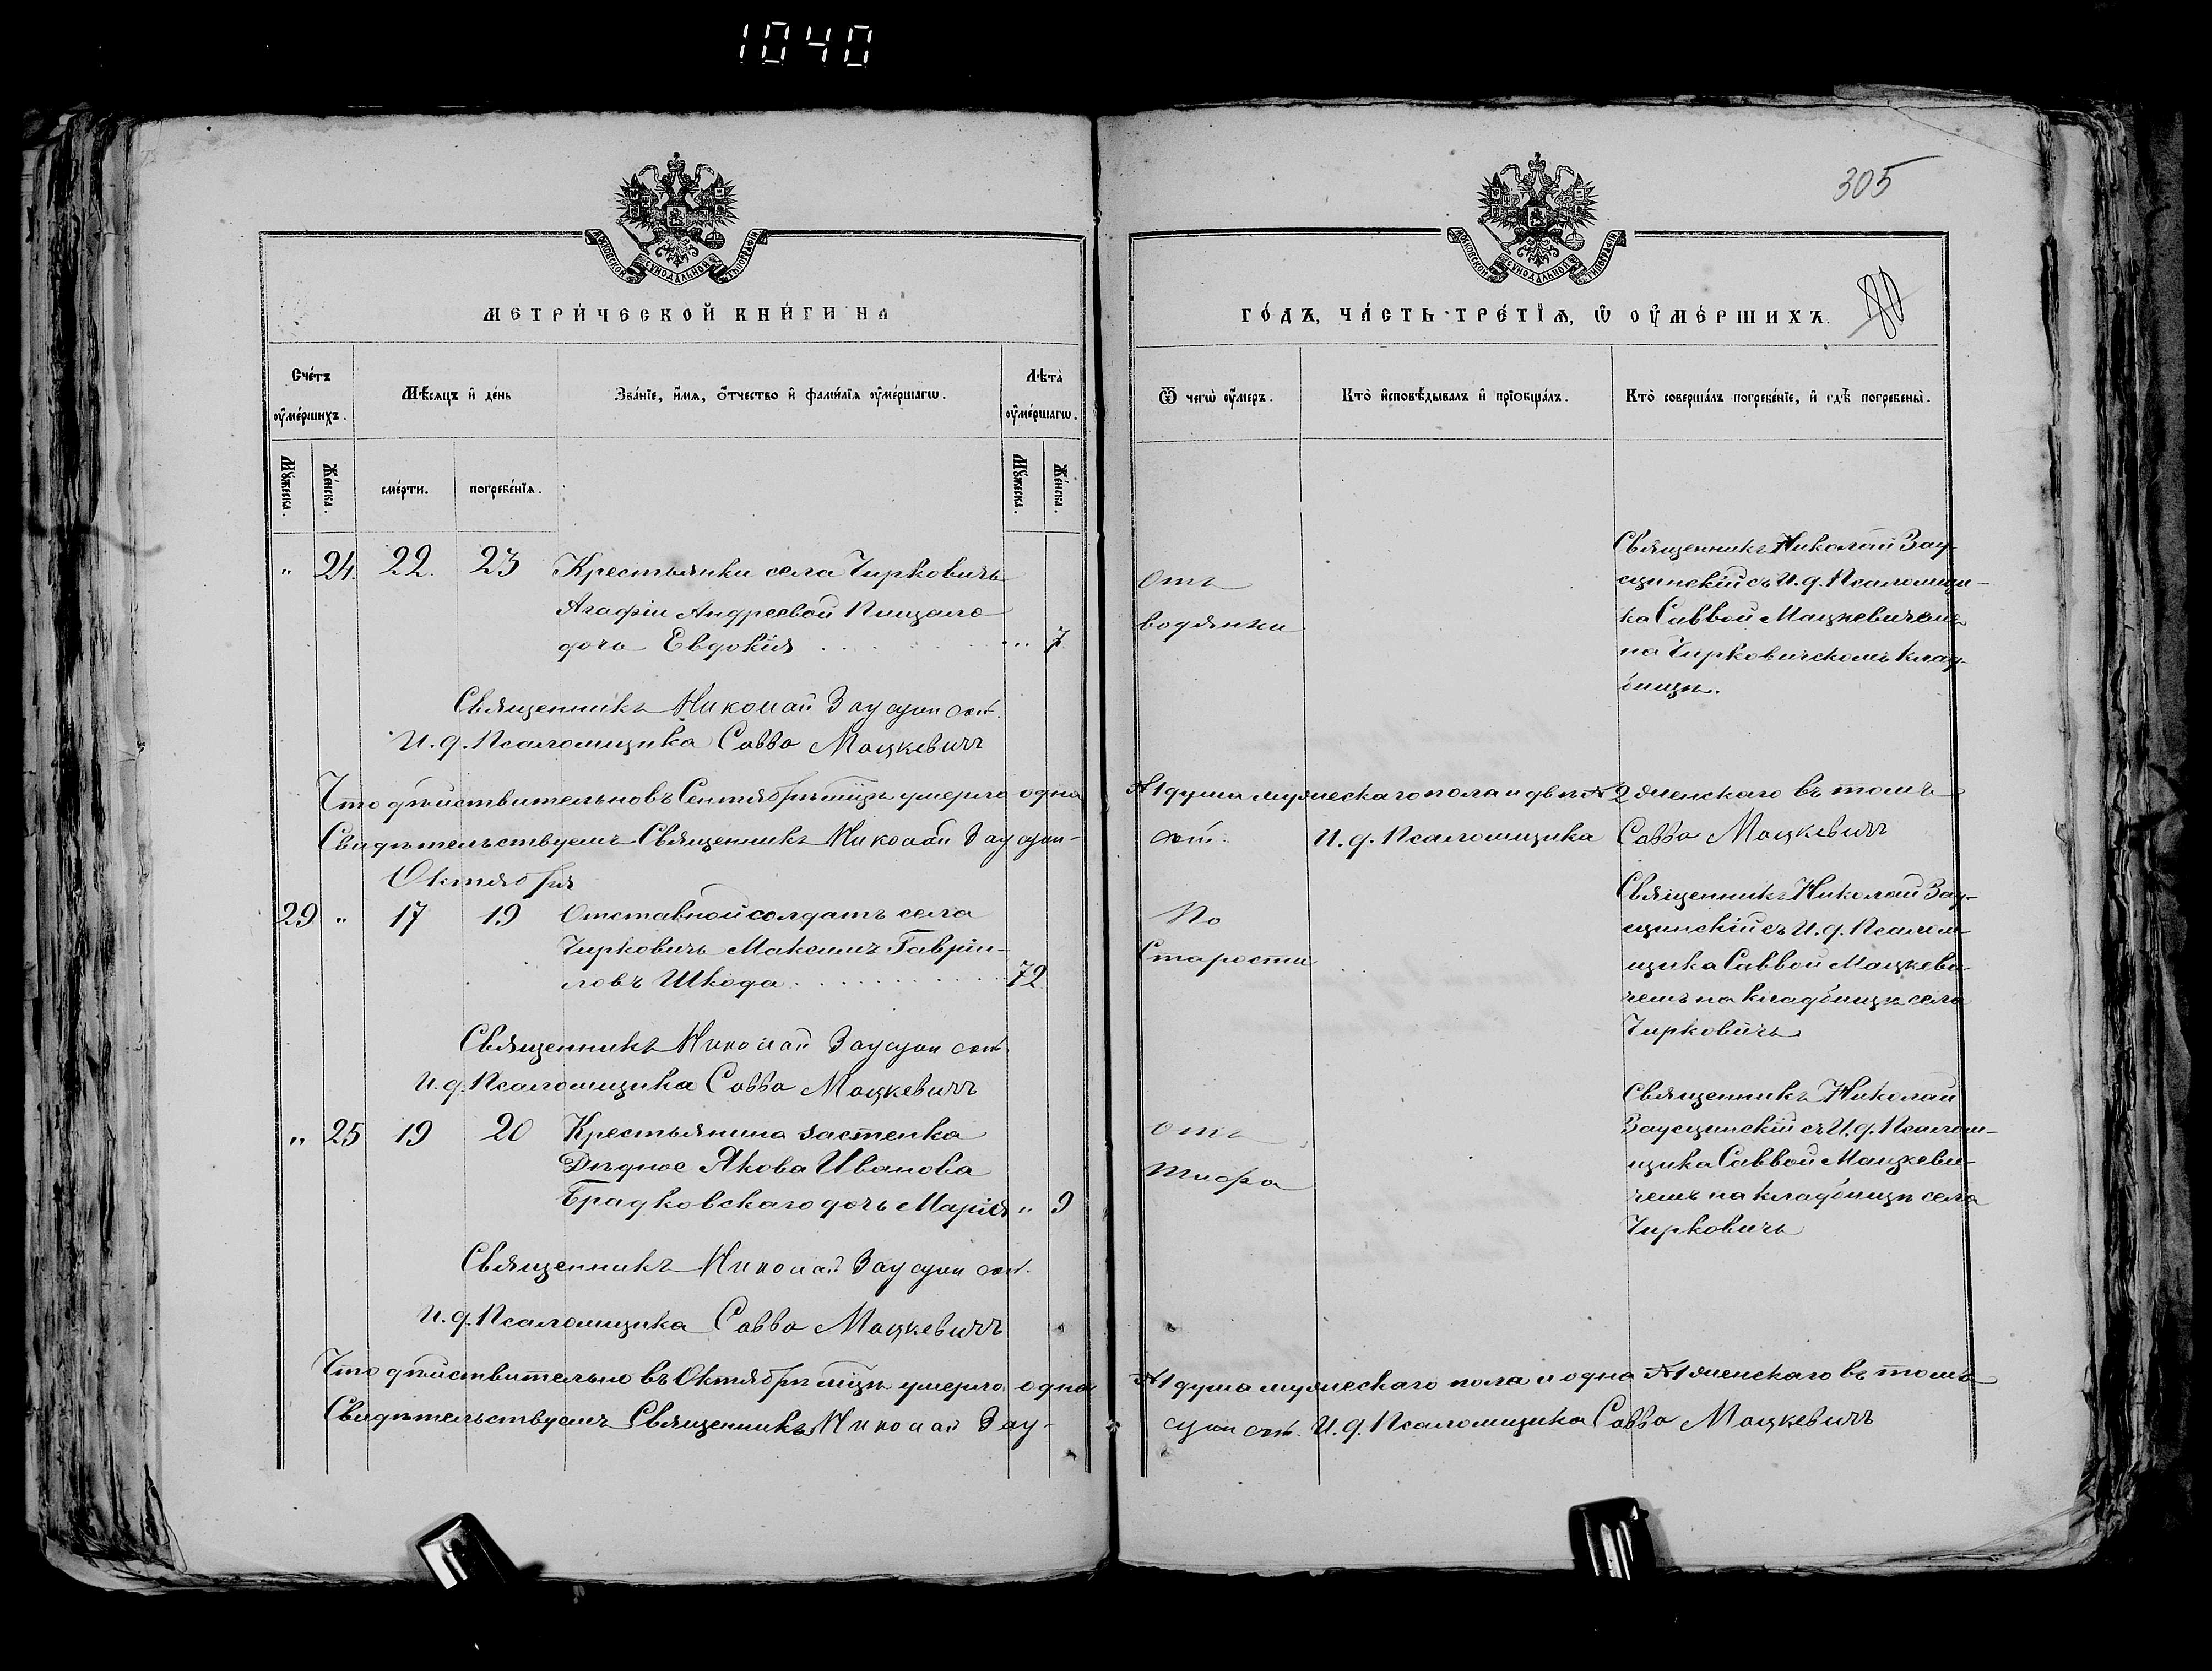 1040
305
80
МОСКОВСКОЙ СѴНОДАЛЬНОЙ ТИПОГРАФІИ
МОСКОВСКОЙ СѴНОДАЛЬНОЙ ТИПОГРАФІИ
МЕТРИ́ЧЕСКОЙ КНИ́ГИ НА
ГО́ДЪ, ЧА́СТЬ ТРЕ́ТІѦ, Ѡ ОУ҆МЕ́РШИХЪ.
Сче́тъ оу҆ме́ршихъ.
Мѣ́сяцъ и҆ де́нь
Зва́нїе, и҆́мѧ, ѻ҆́тчество и҆ фами́лїѧ оу҆ме́ршагѡ.
Лѣ́та оу҆ме́ршагѡ.
Ѿ чегѡ̀ оу҆́меръ.
Кто̀ и҆сповѣ́дывалъ и҆ прїобща́лъ.
Кто̀ соверша́лъ погребе́нїе, и҆ гдѣ̀ погребены̀.
Мꙋ́жеска.
Же́нска.
сме́рти.
погребе́нїѧ.
Мꙋ́жеска.
Же́нска.
" 24. 22. 23 Крестьянки села Чирковичъ
Агафіи Андреевой Пищало
дочь Евдокія " 7
Отъ
водянки
Священникъ Николай Зау-
сцинскій съ И. д. Псаломщи-
ка Саввой Мацкевичемъ
на Чирковичскомъ клад-
бищѣ.
Священникъ Николай Заусцинскій.
И. д. Псаломщика Савва Мацкевичъ
Что дѣйствительно въ Сентябрѣ мѣсяцѣ умерло одна № 1 душа мужескаго пола и двѣ № 2 женскаго въ томъ
Свидѣтельствуемъ Священникъ Николай Заусцинскій. И. д. Псаломщика Савва Мацкевичъ
Октября
29 " 17 19 Отставной солдатъ села
Чирковичъ Максимъ Гаврiи-
ловъ Шкода 72
По
Старости
Священникъ Николай Зау-
сцинскій съ И. д. Псалом-
щика Саввой Мацкеви-
чемъ на кладбищѣ села
Чирковичъ
Священникъ Николай Заусцинскій.
И. д. Псаломщика Савва Мацкевичъ
" 25 19 20 Крестьянина застенка
Дѣдное Якова Иванова
Брадковскаго дочь Марія " 9
отъ
тифа
Священникъ Николай
Заусцинскій съ И. д. Псалом-
щика Саввой Мацкеви-
чемъ на кладбищѣ села
Чирковичъ
Священникъ Николай Заусцинскій.
И. д. Псаломщика Савва Мацкевичъ
Что дѣйствительно въ Октябрѣ мѣсяцѣ умерло одна № 1 душа мужескаго пола и одна № 1 женскаго въ томъ
Свидѣтельствуемъ Священникъ Николай Заусцинскій. И. д. Псаломщика Савва Мацкевичъ